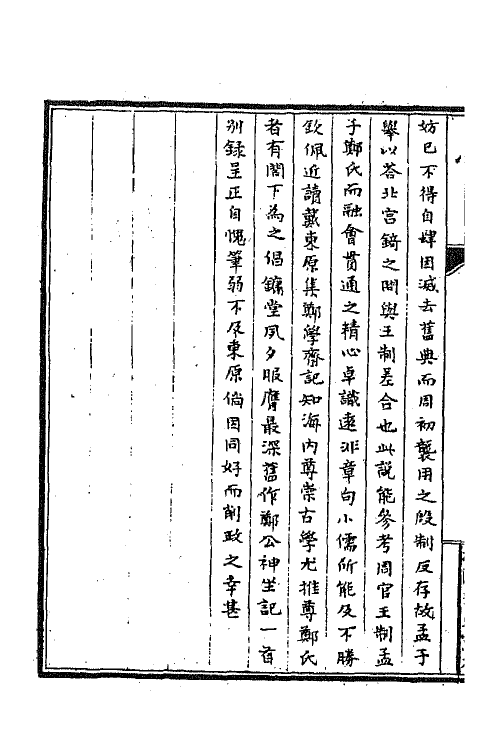 妨已不得自肆因滅去舊典而周初襲用之殷制反存故孟子
舉以荅北宮錡之問與王制差合也此説能參考周官王制孟
子鄭氏而融會貫通之精心卓識遠非章句小儒所能及不勝
欽佩近讀戴東原集鄭學齋記知海内尊崇古學尤推尊鄭氏
者有閣下為之倡鏞堂夙夕服膺最深舊作鄭公神坐記一首
别録呈正自愧筆弱不及東原倘因同好而削政之幸甚